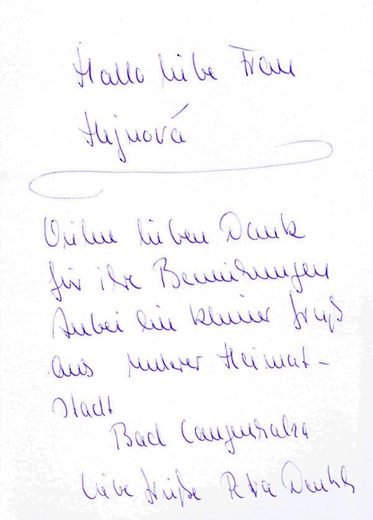 Hallo liebe Frau
Hejnová
Vielen lieben Dank
für ihre Bemühungen
Anbei ein kleiner Gruß
aus unserer Heimat-
stadt
Bad Langensalza
Liebe Grüße Petra